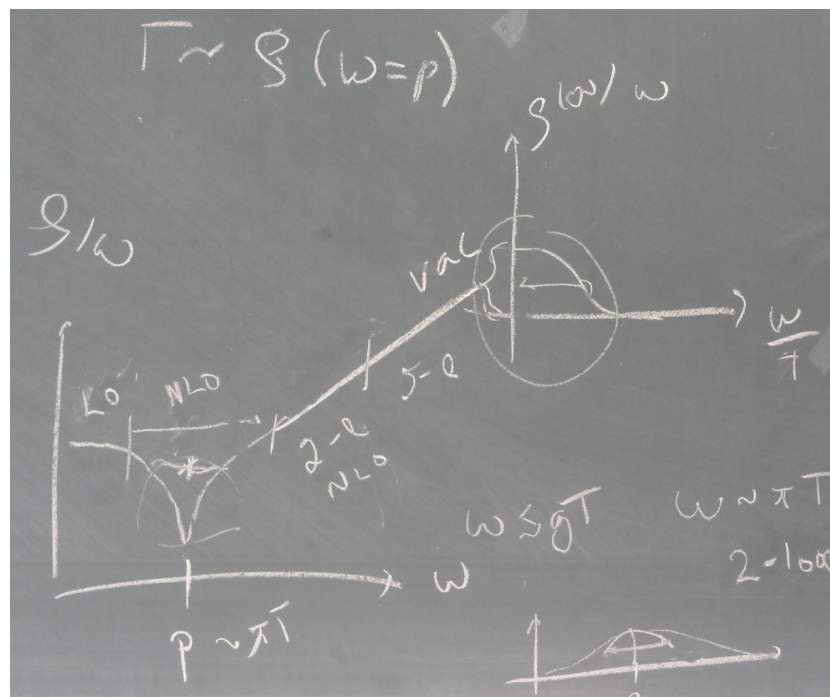 Γ ~ ρ (ω = p)
ρ(ω)/ω
ρ/ω
vac
ω/T
LO
NLO
5-l
2-l
NLO
ω ≲ gT
ω ~ πT
2-loo
ω
p ~ πT